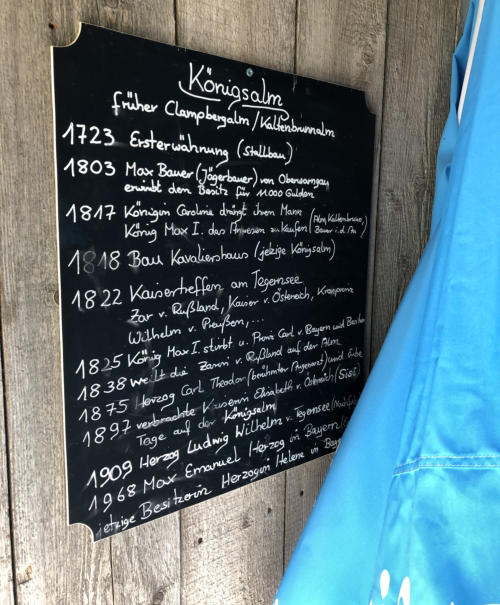 Königsalm
früher Clampbergalm/Kaltenbrunnalm
1723 Ersterwähnung (Stallbau)
1803 Max Bauer (Jägerbauer) von Oberwarngau
erwirbt den Besitz für 11000 Gulden
1817 Königin Carolina drängt ihren Mann
König Max I. das Anwesen zu kaufen (Alm, Kaltenbrunn, Bauer i.d. Au)
1818 Bau Kavaliershaus (jetzige Königsalm)
1822 Kaisertreffen am Tegernsee
Zar v. Rußland, Kaiser v. Östereich, Kronprinz
Wilhelm v. Preußen,...
1825 König Max I. stirbt u. Prinz Carl v. Bayern wird Besitzer
1838 weilt die Zarin v. Rußland auf der Alm
1875 Herzog Carl Theodor (berühmter Augenarzt) wird Erbe
1897 verbrachte Kaiserin Elisabeth v. Östereich (Sisi)
Tage auf der Königsalm
1909 Herzog Ludwig Wilhelm v. Tegernsee
1968 Max Emanuel Herzog in Bayern
jetzige Besitzerin Herzogin Helene in